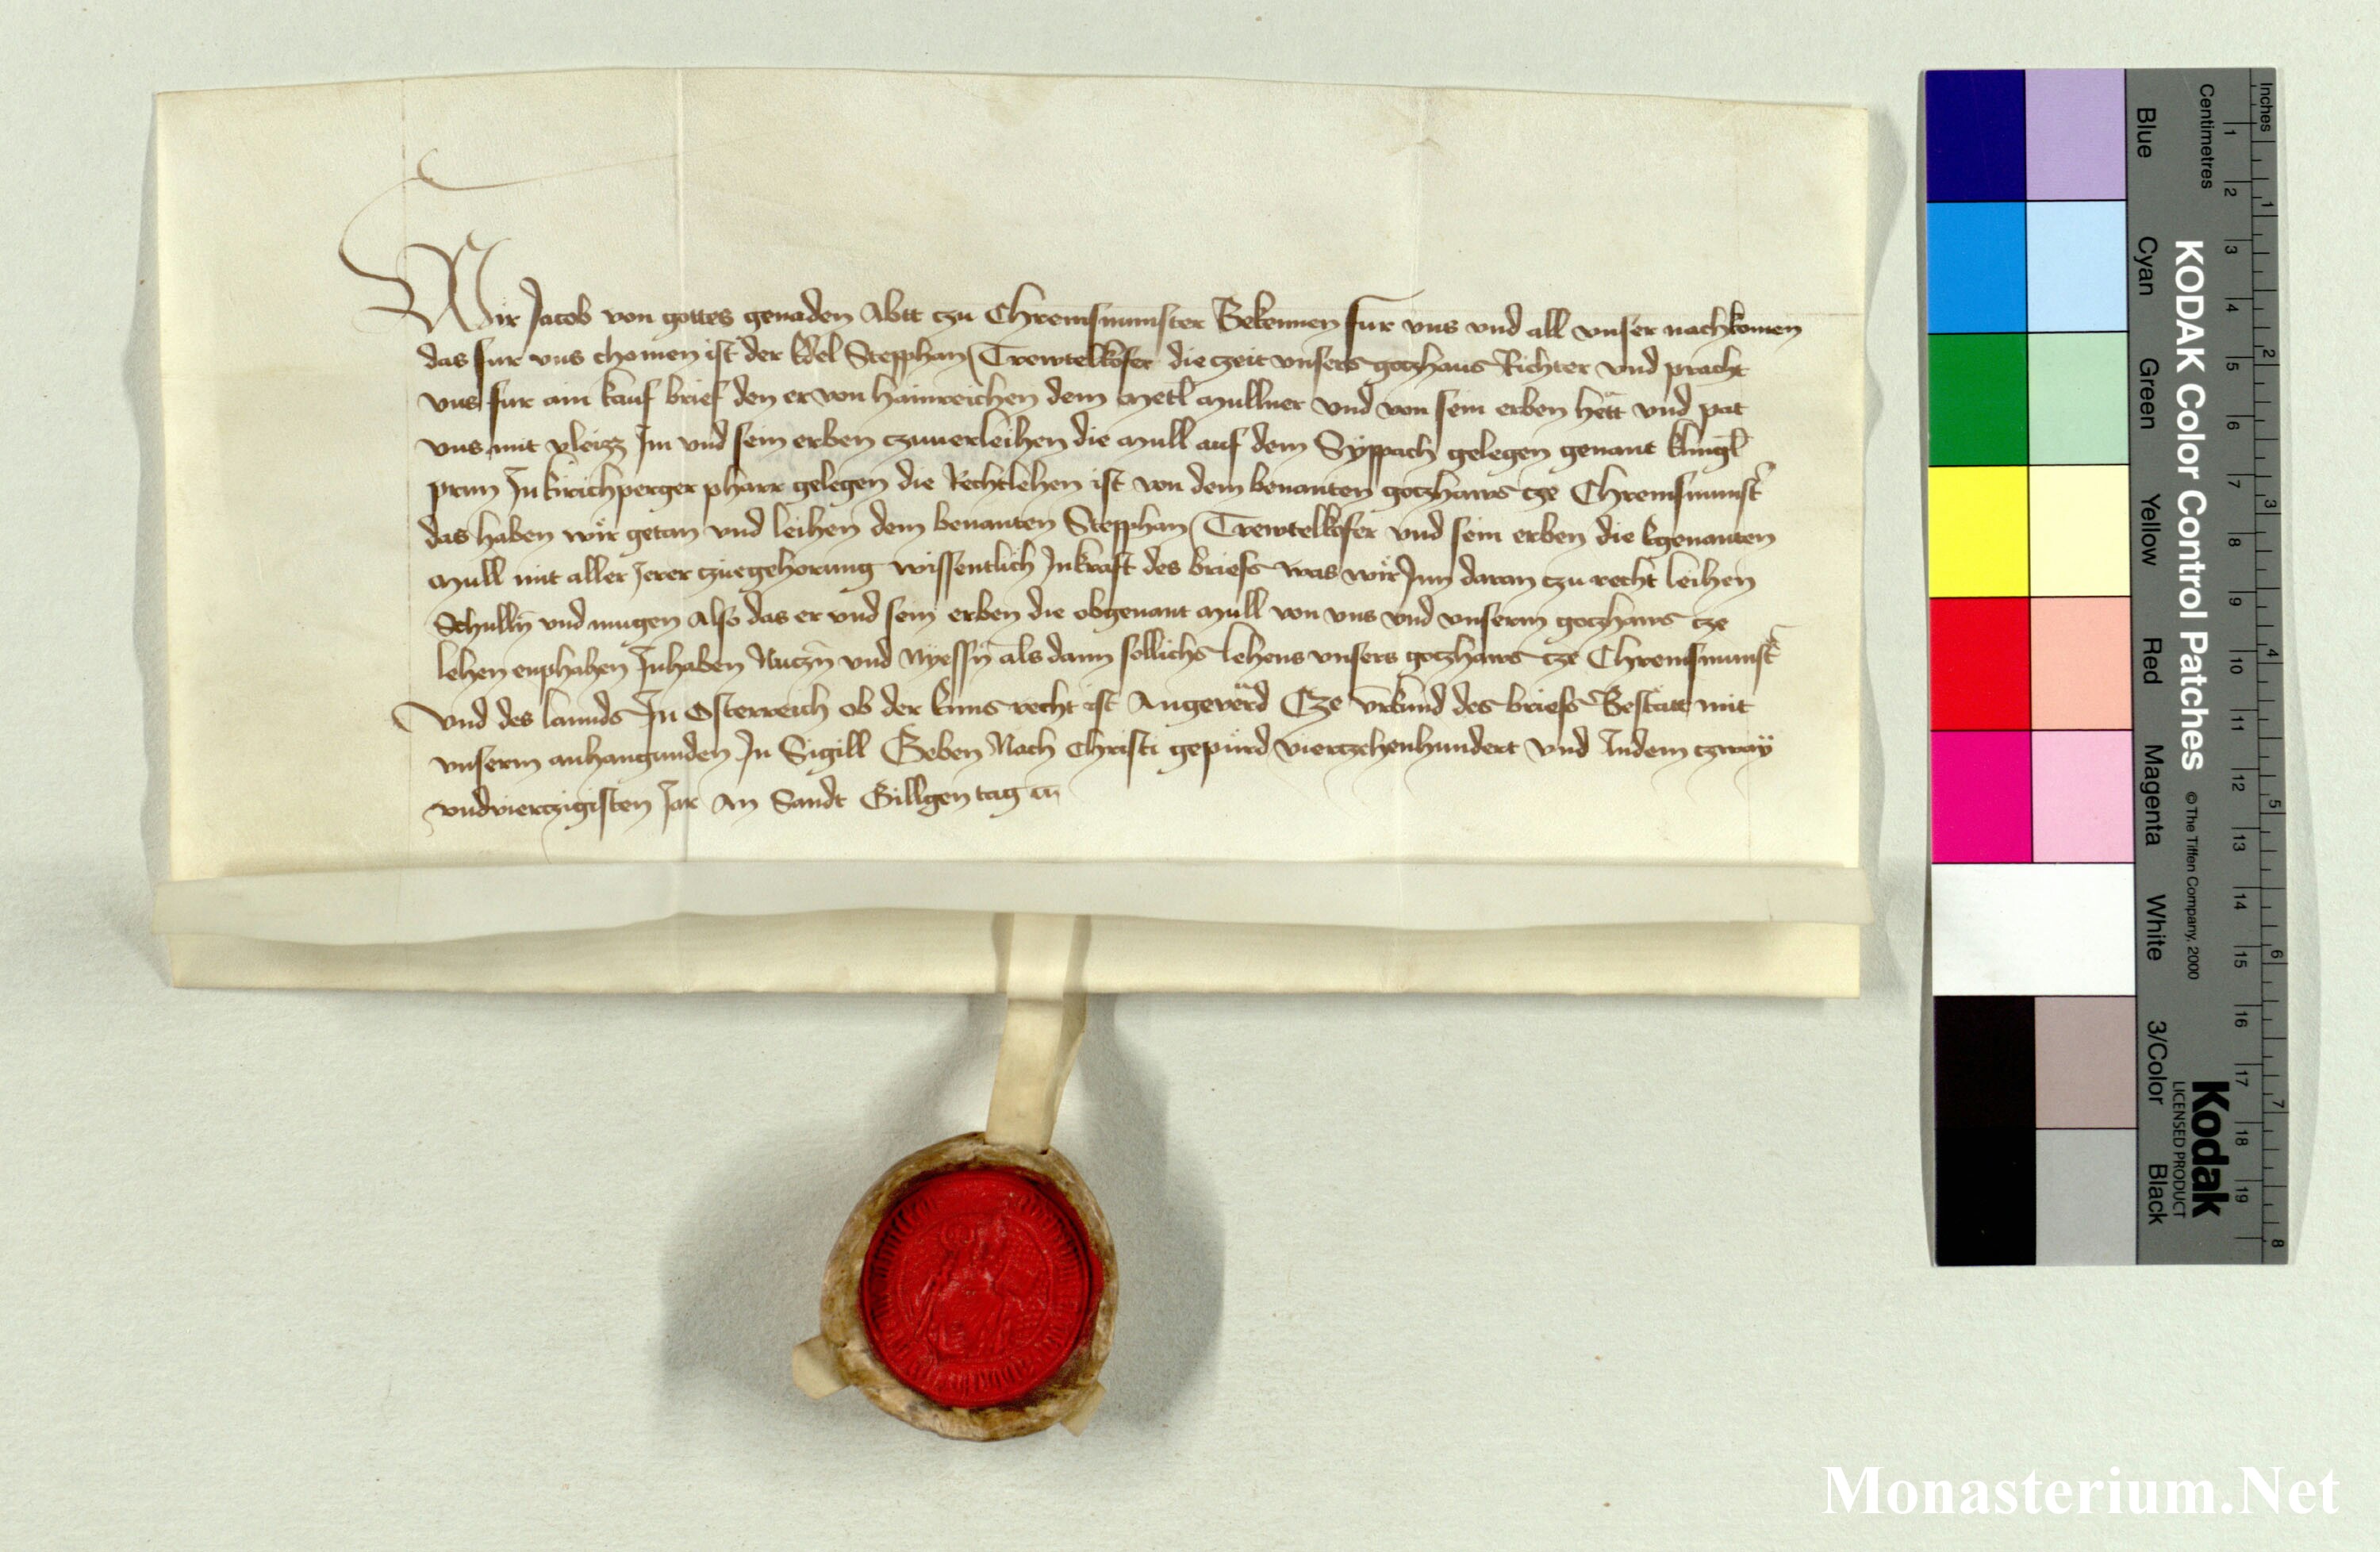 Wir Jacob von gottes genaden Abtt czu Chremsmunster Bekennen fur vns vnd all vnser nachkomen
das fur vns chomen ist der Edel Stepphan Trewtelkofer die czeit vnsers goczhaus Richter vnd pracht
vns fur ain kauf brief den er von Hainreichen dem metl mullner vnd von sein erben hett vnd pat
vns mit vleizz Im vnd sein erben czuuerleihen die mull auf dem Syppach gelegen genant klingl
prun In kirichperger pharr gelegen die Rechtlehen ist von dem benanten goczhaws cze Chremsmunst
das haben wir getan vnd leihen dem benanten Stepphan Trewtelkofer vnd sein erben die egenanten
mull mit aller Jerer czuegehorung wissentlich Inkraft des briefs was wir Jnn daran czu recht leihen
Schulln vnd mugen Also das er vnd sein erben die obgenant mull von vns vnd vnserm goczhaws cze
lehen enphahen Inhaben Nuczn vnd Nyessn als dann sollichs lehens vnsers goczhaws cze Chremsmunst
Vnd des lannds In Osterreich ob der Enns recht ist Angeverd Cze vrkund des briefs Bestatt mit
vnserm anhangunden In Sigill Geben Nach Christi gepurd vierczehenhundert vnd Indem czway
vndvierczigisten Jar An Sandt Gillgen tag
KODAK Color Control Patches © The Tiffen Company, 2000
Kodak
LICENSED PRODUCT
Inches
1 2 3 4 5 6 7 8
Centimetres
1 2 3 4 5 6 7 8 9 10 11 12 13 14 15 16 17 18 19
Blue Cyan Green Yellow Red Magenta White 3/Color Black
Monasterium.Net